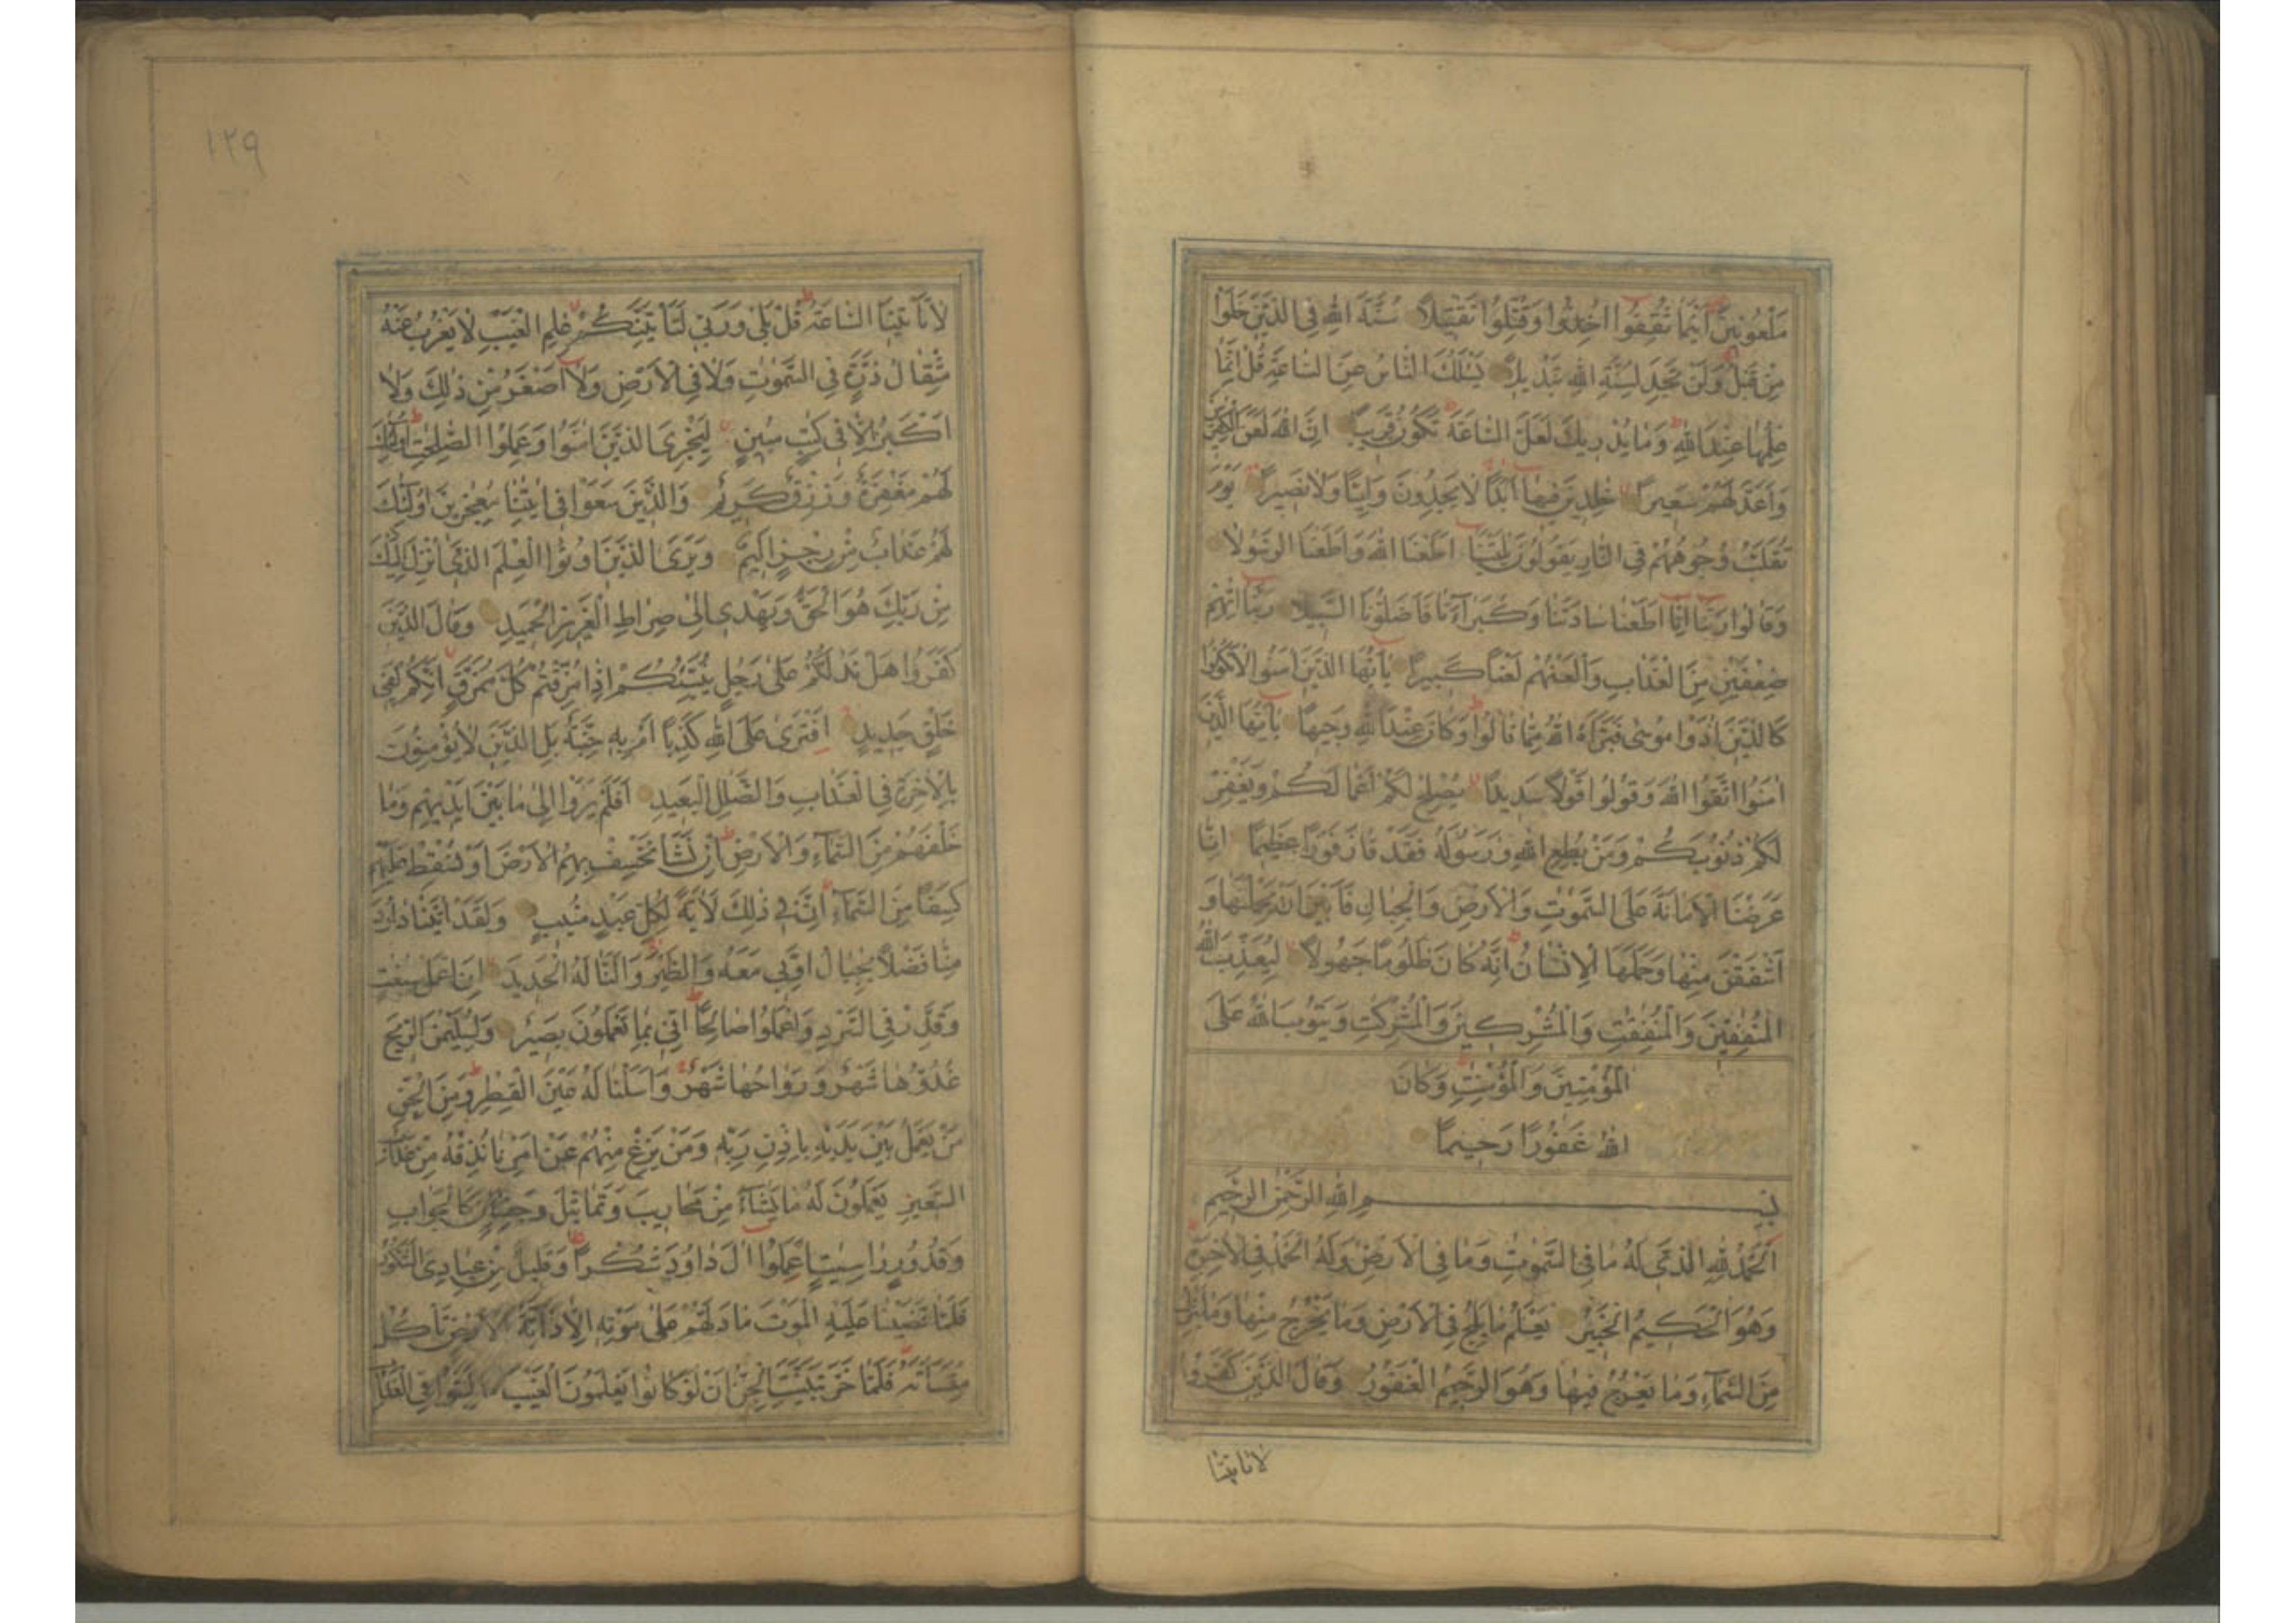 مَلْعُونِينَ اَيْنَمَا ثُقِفُوا اُخِذُوا وَقُتِّلُوا تَقْتِيلًا سُنَّةَ اللهِ فِى الَّذِينَ خَلَوْا
مِنْ قَبْلُ وَلَنْ تَجِدَ لِسُنَّةِ اللهِ تَبْدِيلًا يَسْئَلُكَ النَّاسُ عَنِ السَّاعَةِ قُلْ اِنَّمَا
عِلْمُهَا عِنْدَ اللهِ وَمَا يُدْرِيكَ لَعَلَّ السَّاعَةَ تَكُونُ قَرِيبًا اِنَّ اللهَ لَعَنَ الْكٰفِرِينَ
وَاَعَدَّ لَهُمْ سَعِيرًا خٰلِدِينَ فِيهَا اَبَدًا لَا يَجِدُونَ وَلِيًّا وَلَا نَصِيرًا يَوْمَ
تُقَلَّبُ وُجُوهُهُمْ فِى النَّارِ يَقُولُونَ يٰلَيْتَنَا اَطَعْنَا اللهَ وَاَطَعْنَا الرَّسُولَا
وَقَالُوا رَبَّنَا اِنَّا اَطَعْنَا سَادَتَنَا وَكُبَرَآءَنَا فَاَضَلُّونَا السَّبِيلَا رَبَّنَا اٰتِهِمْ
ضِعْفَيْنِ مِنَ الْعَذَابِ وَالْعَنْهُمْ لَعْنًا كَبِيرًا يٰاَيُّهَا الَّذِينَ اٰمَنُوا لَا تَكُونُوا
كَالَّذِينَ اٰذَوْا مُوسٰى فَبَرَّاَهُ اللهُ مِمَّا قَالُوا وَكَانَ عِنْدَ اللهِ وَجِيهًا يٰاَيُّهَا الَّذِينَ
اٰمَنُوا اتَّقُوا اللهَ وَقُولُوا قَوْلًا سَدِيدًا يُصْلِحْ لَكُمْ اَعْمَالَكُمْ وَيَغْفِرْ
لَكُمْ ذُنُوبَكُمْ وَمَنْ يُطِعِ اللهَ وَرَسُولَهُ فَقَدْ فَازَ فَوْزًا عَظِيمًا اِنَّا
عَرَضْنَا الْاَمَانَةَ عَلَى السَّمٰوٰتِ وَالْاَرْضِ وَالْجِبَالِ فَاَبَيْنَ اَنْ يَحْمِلْنَهَا وَ
اَشْفَقْنَ مِنْهَا وَحَمَلَهَا الْاِنْسَانُ اِنَّهُ كَانَ ظَلُومًا جَهُولًا لِيُعَذِّبَ اللهُ
الْمُنٰفِقِينَ وَالْمُنٰفِقٰتِ وَالْمُشْرِكِينَ وَالْمُشْرِكٰتِ وَيَتُوبَ اللهُ عَلَى
الْمُؤْمِنِينَ وَالْمُؤْمِنٰتِ وَكَانَ
اللهُ غَفُورًا رَحِيمًا
بِسْمِ اللهِ الرَّحْمٰنِ الرَّحِيمِ
اَلْحَمْدُ لِلّٰهِ الَّذِى لَهُ مَا فِى السَّمٰوٰتِ وَمَا فِى الْاَرْضِ وَلَهُ الْحَمْدُ فِى الْاٰخِرَةِ
وَهُوَ الْحَكِيمُ الْخَبِيرُ يَعْلَمُ مَا يَلِجُ فِى الْاَرْضِ وَمَا يَخْرُجُ مِنْهَا وَمَا يَنْزِلُ
مِنَ السَّمَآءِ وَمَا يَعْرُجُ فِيهَا وَهُوَ الرَّحِيمُ الْغَفُورُ وَقَالَ الَّذِينَ كَفَرُوا
لَا تَاْتِينَا
١٢٩
لَا تَاْتِينَا السَّاعَةُ قُلْ بَلٰى وَرَبِّى لَتَاْتِيَنَّكُمْ عٰلِمِ الْغَيْبِ لَا يَعْزُبُ عَنْهُ
مِثْقَالُ ذَرَّةٍ فِى السَّمٰوٰتِ وَلَا فِى الْاَرْضِ وَلَا اَصْغَرُ مِنْ ذٰلِكَ وَلَا
اَكْبَرُ اِلَّا فِى كِتٰبٍ مُبِينٍ لِيَجْزِىَ الَّذِينَ اٰمَنُوا وَعَمِلُوا الصّٰلِحٰتِ اُولٰئِكَ
لَهُمْ مَغْفِرَةٌ وَرِزْقٌ كَرِيمٌ وَالَّذِينَ سَعَوْا فِى اٰيٰتِنَا مُعٰجِزِينَ اُولٰئِكَ
لَهُمْ عَذَابٌ مِنْ رِجْزٍ اَلِيمٌ وَيَرَى الَّذِينَ اُوتُوا الْعِلْمَ الَّذِى اُنْزِلَ اِلَيْكَ
مِنْ رَبِّكَ هُوَ الْحَقَّ وَيَهْدِى اِلٰى صِرَاطِ الْعَزِيزِ الْحَمِيدِ وَقَالَ الَّذِينَ
كَفَرُوا هَلْ نَدُلُّكُمْ عَلٰى رَجُلٍ يُنَبِّئُكُمْ اِذَا مُزِّقْتُمْ كُلَّ مُمَزَّقٍ اِنَّكُمْ لَفِى
خَلْقٍ جَدِيدٍ اَفْتَرٰى عَلَى اللهِ كَذِبًا اَمْ بِهِ جِنَّةٌ بَلِ الَّذِينَ لَا يُؤْمِنُونَ
بِالْاٰخِرَةِ فِى الْعَذَابِ وَالضَّلٰلِ الْبَعِيدِ اَفَلَمْ يَرَوْا اِلٰى مَا بَيْنَ اَيْدِيهِمْ وَمَا
خَلْفَهُمْ مِنَ السَّمَآءِ وَالْاَرْضِ اِنْ نَشَاْ نَخْسِفْ بِهِمُ الْاَرْضَ اَوْ نُسْقِطْ عَلَيْهِمْ
كِسَفًا مِنَ السَّمَآءِ اِنَّ فِى ذٰلِكَ لَاٰيَةً لِكُلِّ عَبْدٍ مُنِيبٍ وَلَقَدْ اٰتَيْنَا دَاوُدَ
مِنَّا فَضْلًا يٰجِبَالُ اَوِّبِى مَعَهُ وَالطَّيْرَ وَاَلَنَّا لَهُ الْحَدِيدَ اَنِ اعْمَلْ سٰبِغٰتٍ
وَقَدِّرْ فِى السَّرْدِ وَاعْمَلُوا صَالِحًا اِنِّى بِمَا تَعْمَلُونَ بَصِيرٌ وَلِسُلَيْمٰنَ الرِّيحَ
غُدُوُّهَا شَهْرٌ وَرَوَاحُهَا شَهْرٌ وَاَسَلْنَا لَهُ عَيْنَ الْقِطْرِ وَمِنَ الْجِنِّ
مَنْ يَعْمَلُ بَيْنَ يَدَيْهِ بِاِذْنِ رَبِّهِ وَمَنْ يَزِغْ مِنْهُمْ عَنْ اَمْرِنَا نُذِقْهُ مِنْ عَذَابِ
السَّعِيرِ يَعْمَلُونَ لَهُ مَا يَشَآءُ مِنْ مَحَارِيبَ وَتَمَاثِيلَ وَجِفَانٍ كَالْجَوَابِ
وَقُدُورٍ رَاسِيٰتٍ اِعْمَلُوا اٰلَ دَاوُدَ شُكْرًا وَقَلِيلٌ مِنْ عِبَادِىَ الشَّكُورُ
فَلَمَّا قَضَيْنَا عَلَيْهِ الْمَوْتَ مَا دَلَّهُمْ عَلٰى مَوْتِهِ اِلَّا دَآبَّةُ الْاَرْضِ تَاْكُلُ
مِنْسَاَتَهُ فَلَمَّا خَرَّ تَبَيَّنَتِ الْجِنُّ اَنْ لَوْ كَانُوا يَعْلَمُونَ الْغَيْبَ مَا لَبِثُوا فِى الْعَذَابِ